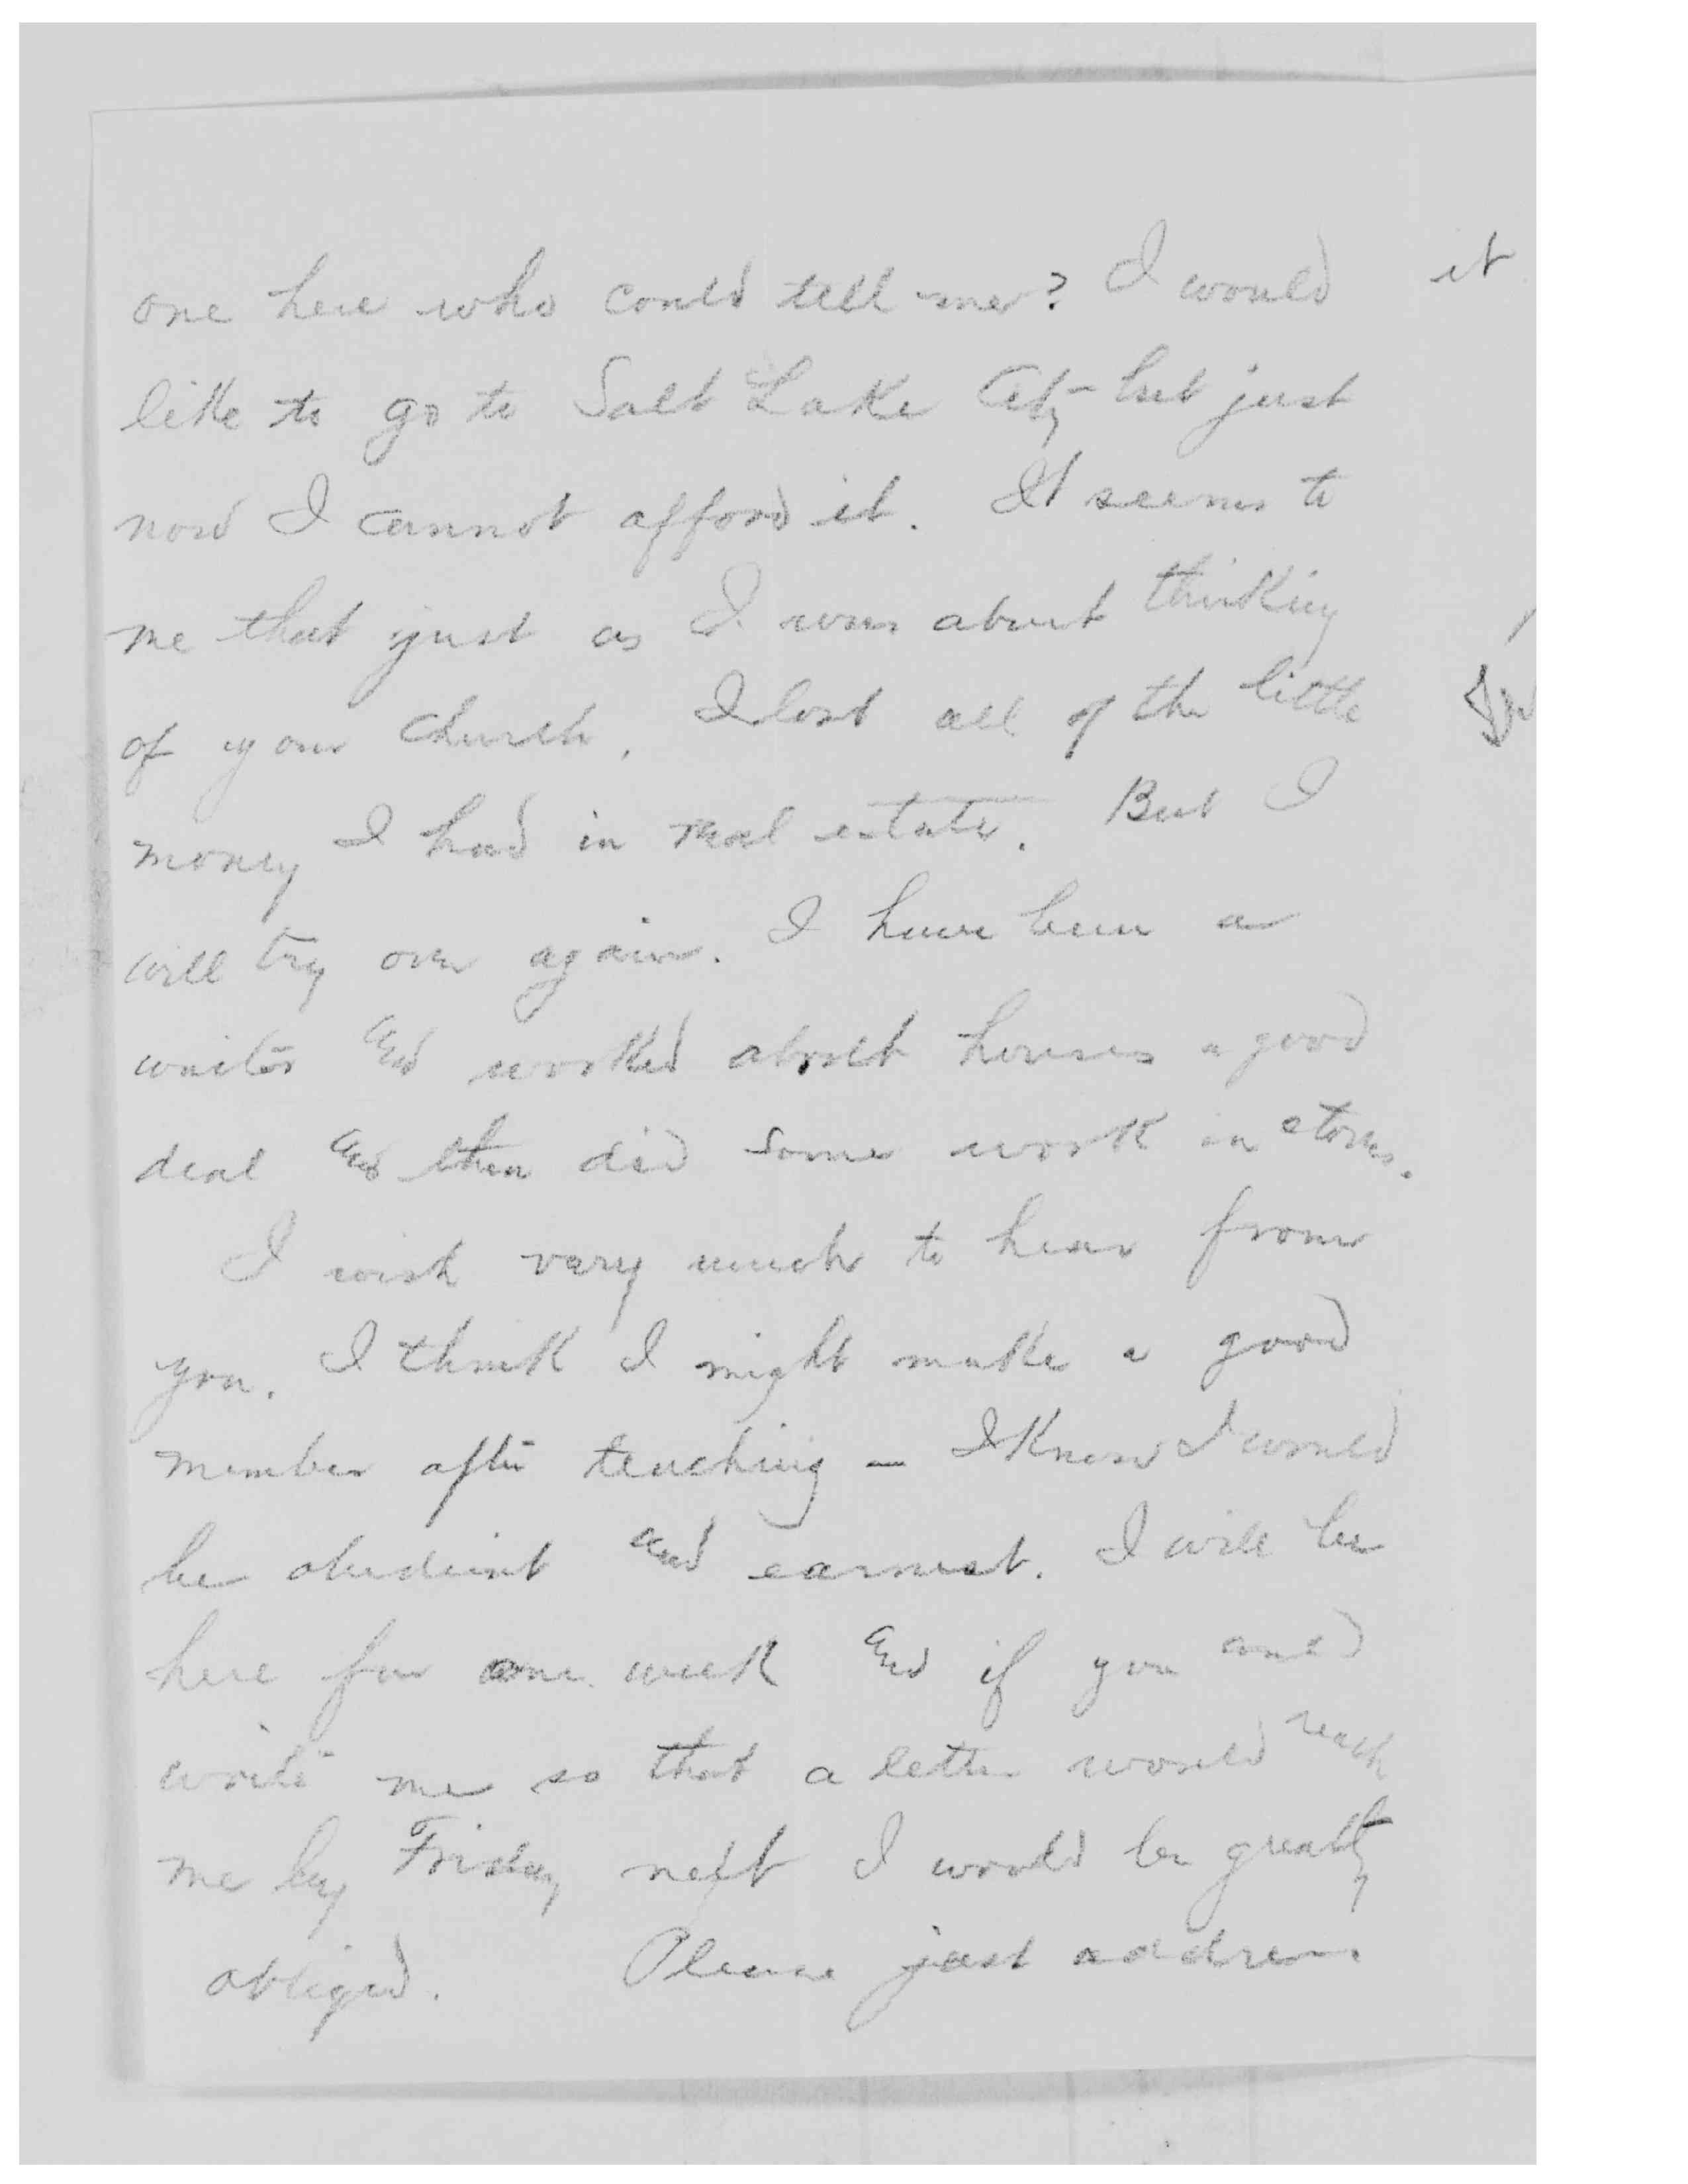 one here who could tell me? I would
like to go to Salt Lake City but just
now I cannot afford it. It seems to
me that just as I was about thinking
of your church, I lost all of the little
money I had in real estate. But I
will try over again. I have been a
waiter and worked about houses a good
deal and then did some work in stores.
I wish very much to hear from
you. I think I might make a good
member after teaching - I know I would
be obedient and earnest. I will be
here for one week and if you could
write me so that a letter would reach
me by Friday next I would be greatly
obliged. Please just address
it